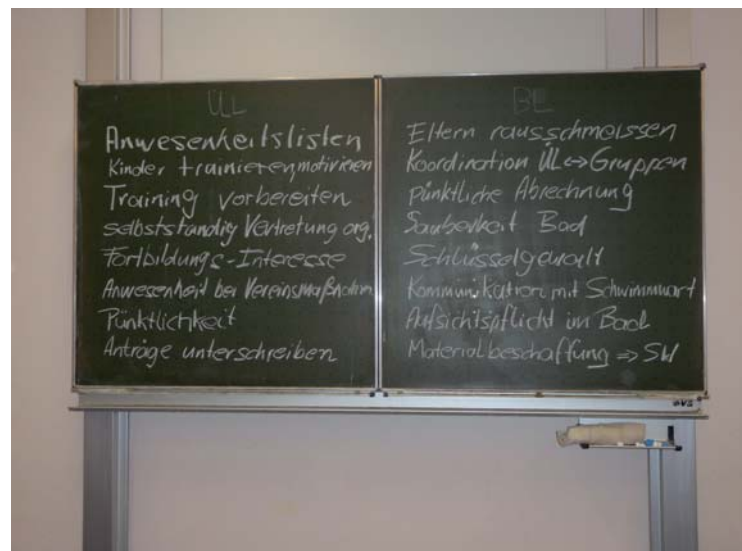 ÜL
Anwesenheitslisten
Kinder trainieren, motivieren
Training vorbereiten
selbstständig Vertretung org.
Fortbildungs-Interesse
Anwesenheit bei Vereinsmaßnahmen
Pünktlichkeit
Anträge unterschreiben
BL
Eltern rausschmeissen
Koordination ÜL↔Gruppen
Pünktliche Abrechnung
Sauberkeit Bad
Schlüsselgewalt
Kommunikation mit Schwimmwart
Aufsichtspflicht im Bad
Materialbeschaffung ⇒ SW